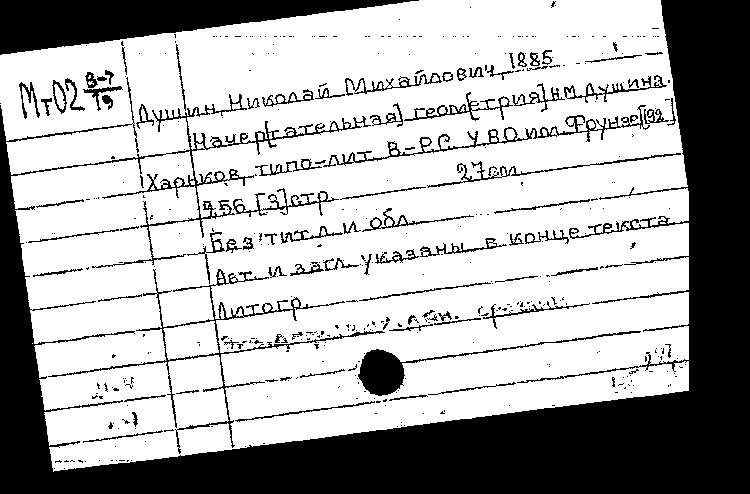 МтО2 В-7/19
Душин, Николай Михайлович, 1885
Начер[тательная] геом[етрия] Н.М. Душина.
Харьков, типо-лит. В.-Р.С. У.В.О им. Фрунзе, [192 ]
256, [3] стр. 27 см.
Без тит. л и обл.
Авт. и загл. указаны в конце текста
Литогр.